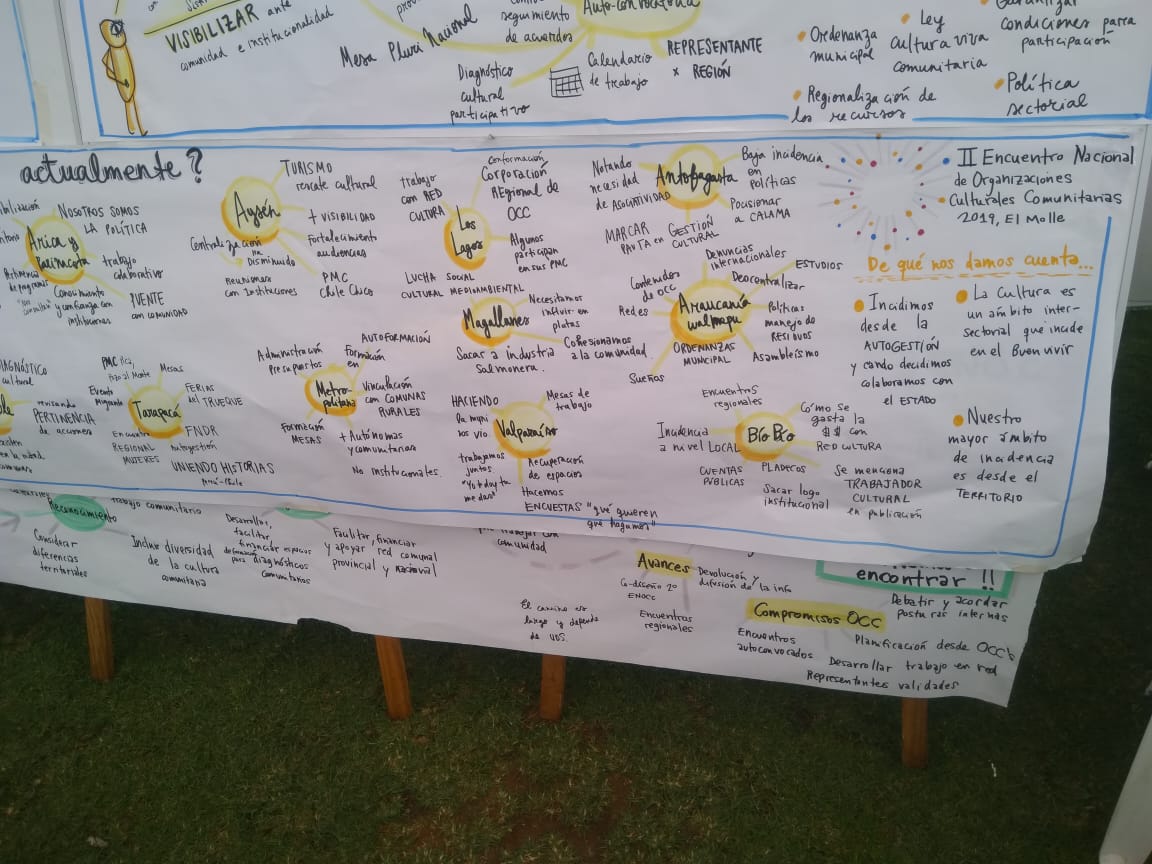 VISIBILIZAR ante
comunidad e institucionalidad
Mesa Pluri Nacional
seguimiento
de acuerdos
Autoconvocatoria
Diagnóstico
cultural
participativo
Calendario
de trabajo
REPRESENTANTE
x REGIÓN
Ordenanza
municipal
Ley
cultura viva
comunitaria
condiciones para
participación
Regionalización de
los recursos
Política
sectorial
actualmente?
NOSOTROS SOMOS
LA POLÍTICA
Arica y
Parinacota
trabajo
colaborativo
Conocimiento
y confianza con
instituciones
PUENTE
con COMUNIDAD
TURISMO
rescate cultural
Aysén
+ VISIBILIDAD
Fortalecimiento
audiencias
Centralización
ha
Disminuido
Reuniones
con Instituciones
PMC
Chile Chico
trabajo
con RED
CULTURA
Conformación
Corporación
REgional de
OCC
Los
Lagos
Algunos
participan
en sus PMC
LUCHA SOCIAL
CULTURAL MEDIAMBIENTAL
Magallanes
Necesitamos
influir en
platas
Cohesionamos
a la comunidad.
Sacar a industria
Salmonera.
Notando
necesidad
de ASOCIATIVIDAD
Antofagasta
Baja incidencia
en
Políticas
Posicionar
a CALAMA
MARCAR
PAUTA en GESTIÓN
CULTURAL
Denuncias
internacionales
ESTUDIOS
Contenidos
de OCC
Descentralizar
Redes
Araucanía
walmapu
Políticas
manejo de
RESIDUOS
ORDENANZAS
MUNCIPAL
Asambleísmo
Sueños
II Encuentro Nacional
de Organizaciones
Culturales Comunitarias
2019, El Molle
De qué nos damos cuenta...
Incidimos
desde la
AUTOGESTIÓN
y cando decidimos
colaboramos con
el ESTADO
La Cultura es
un ámbito inter-
sectorial que incide
en el Buen vivir
Nuestro
mayor ámbito
de incidencia
es desde el
TERRITORIO
revisando
PERTINENCIA
de acciones
Mesas
Tarapacá
FERIAS
del TRUEQUE
FNDR
autogestión
Encuentro
REGIONAL
MUJERES
UNIENDO HISTORIAS
Perú-Chile
Administración
Presupuestos
AUTOFORMACIÓN
Formación
en
Metro-
politana
Vinculación
con COMUNAS
RURALES
Formación
MESAS
+ Autónomas
y comunitarias
No institucionales
HACIENDO
Mesas de
trabajo
Valparaíso
trabajamos
juntos
"Yo te doy tu
me das"
Recuperación
de espacios
Hacemos
ENCUESTAS "qué quieren
que hagamos"
Encuentros
regionales
Incidencia
a nivel LOCAL
Bío Bío
Cómo se
gasta la
$$ con
RED CULTURA
CUENTAS
PÚBLICAS
PLADECOS
Sacar logo
institucional
Se menciona
TRABAJADOR
CULTURAL
en publicación
Reconocimiento
trabajo comunitario
Considerar
diferencias
territoriales
Incluir diversidad
de la cultura
comunitaria
Desarrollar,
facilitar,
financiar espacios
para diagnósticos
comunitarios
Facilitar, financiar
y apoyar red comunal
provincial y nacional
comunidad
El camino es
largo y depende
de UDS.
Avances
Co-diseño 2º
ENOCC
Devolución y
difusión de la info
Encuentros
regionales
encontrar!!
Compromisos OCC
Encuentros
autoconvocados
Debatir y acordar
posturas internas
Planificación desde OCC's
Desarrollar trabajo en red
Representantes validades